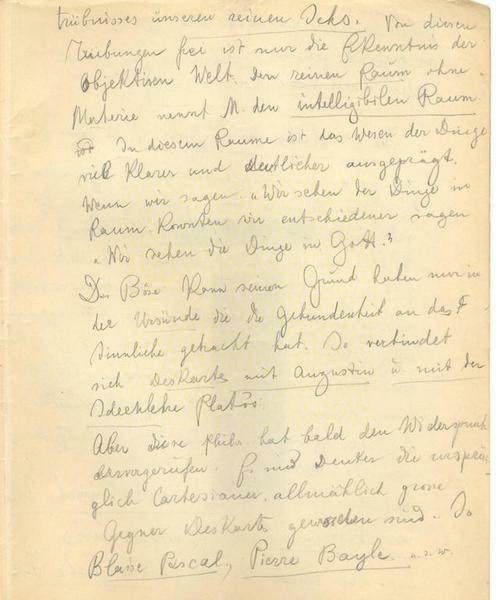 trübnisses unseren reinen Ichs. Von diesen
Trübungen frei ist nur die Erkenntnis der
Objektiven Welt. Den reinen Raum ohne
Materie nennt M. den intelligibilen Raum
In diesem Raume ist das Wesen der Dinge
viel klarer und deutlicher ausgeprägt.
Wenn wir sagen „Wir sehen der Dinge in
Raum konnten wir entschiedener sagen
„Wir sehen die Dinge in Gott."
Das Böse kann seinen Grund haben nur in
der Ursünde die die Gebundenheit an das
sinnliche gebracht hat. So verbindet
sich Deskartes mit Augustin u. mit der
Ideenlehre Platos
Aber diese Philos. hat bald den Widerspruch
hervorgerufen. Es sind Denker die ursprün
glich Cartesianer, allmählich grosse
Gegner Deskarts geworden sind. So
Blaise Pascal, Pierre Bayle u.s.w.